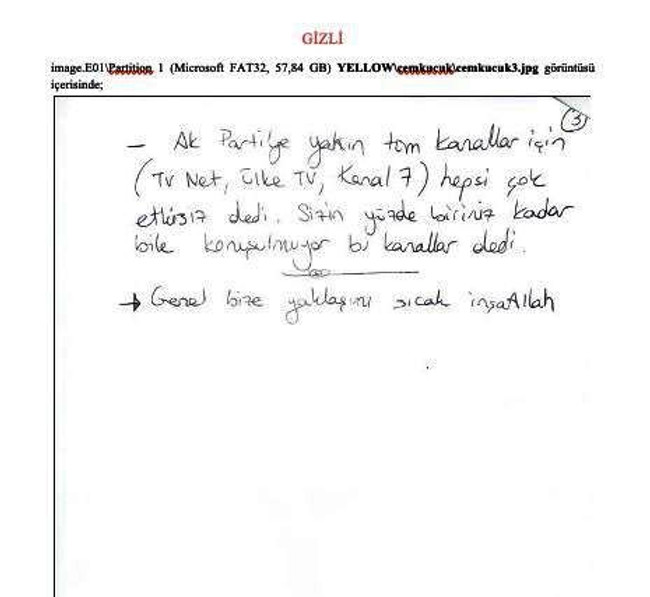 GİZLİ
image.E01\Partition 1 (Microsoft FAT32, 57,84 GB) YELLOW\cemkucuk\cemkucuk3.jpg görüntüsü
içerisinde;
3
- Ak Partiye yakın tom kanallar için
(TV Net, Ülke TV, Kanal 7) hepsi çok
etkisiz dedi. Sizin yüzde biriniz kadar
bile konuşulmuyor bu kanallar dedi.
→ Genel bize yaklaşımı sıcak inşaAllah